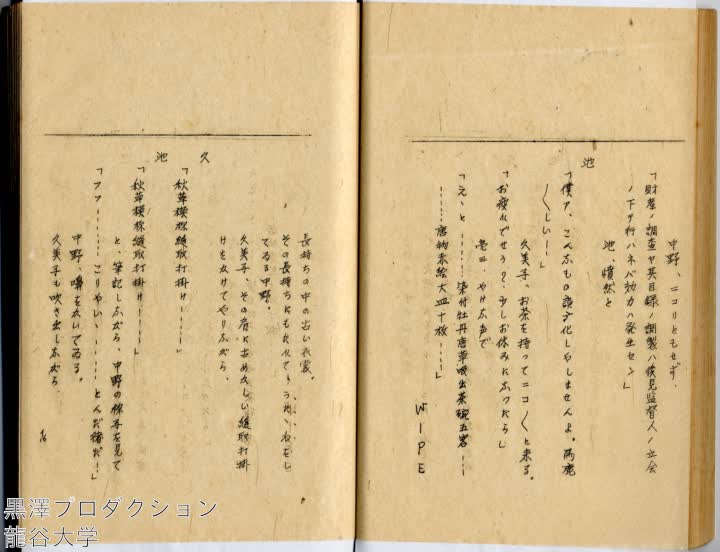 中野、ニコリともせず、
「財産ノ調査ヤ其目録ノ調製ハ後見監督人ノ立会
ノ下ヲ行ハネバ効力ハ発生セン」
池、憤然と
池
「僕ア、こんなもの誤マ化しやしませんよ。馬鹿
〱しい……」
久美子、お茶を持ってニコ〱と来る。
「お疲れでせう？少しお休みになったら」
壱二、やけな声で
「えゝと……染付牡丹唐草吸出茶碗五客……
……唐物赤絵大皿十枚……」
WIPE
長持ちの中の古い衣裳。
その長持ちにもたれてうたゝねをし
てゐる中野。
久美子、その肩に古めかしい縫取打掛
けをかけてやりながら、
久
「秋草模様縫取打掛け……」
池
「秋草模様縫取打掛け……」
と、筆記しながら、中野の様子を見て
「フフ……こりやいゝ……とんだ猪だ！」
中野、鼾をかいてゐる。
久美子も吹き出しながら
黒澤プロダクション
龍谷大学